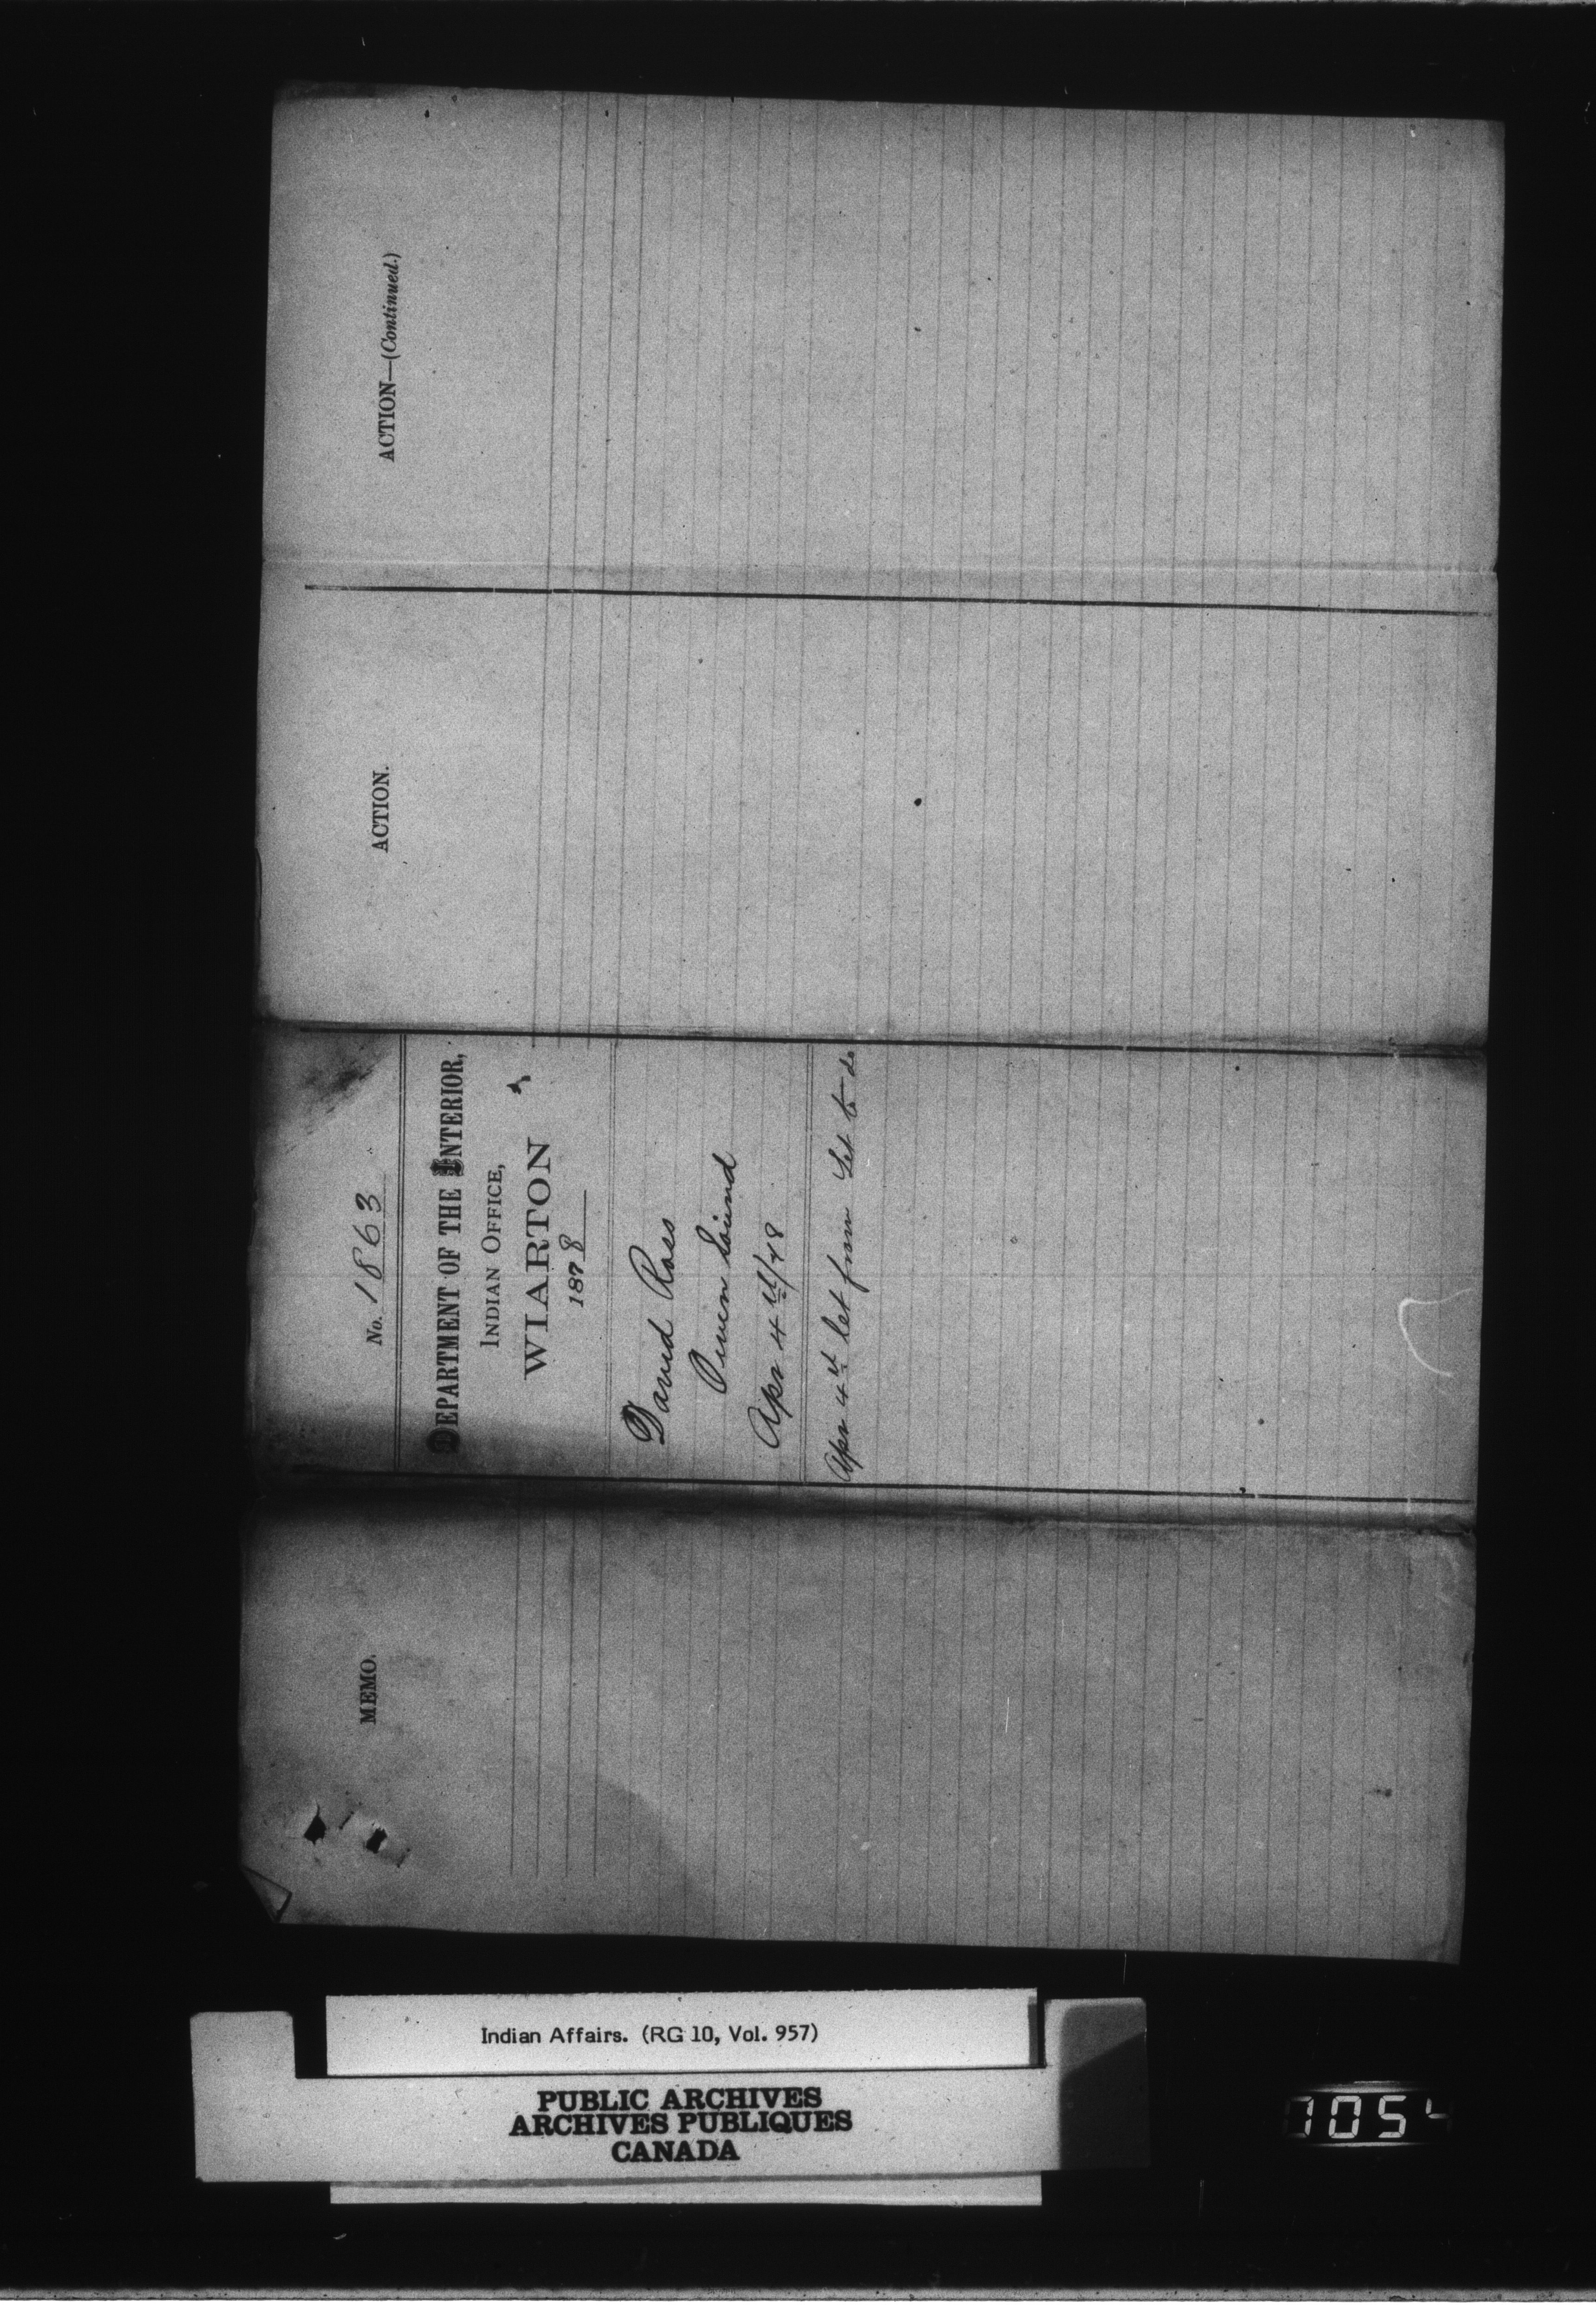 MEMO.
No. 1863
DEPARTMENT OF THE INTERIOR,
INDIAN OFFICE,
WIARTON
1878
David Ross
Owen Sound
Apr 4th/78
Apr 4th let from Let to do
ACTION.
ACTION—(Continued.)
Indian Affairs. (RG 10, Vol. 957)
PUBLIC ARCHIVES
ARCHIVES PUBLIQUES
CANADA
1054